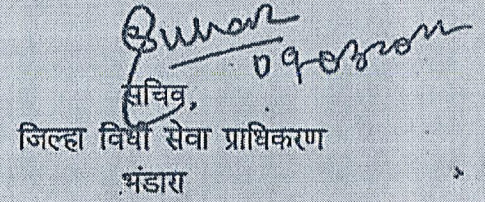 सचिव,
जिल्हा विधी सेवा प्राधिकरण
भंडारा